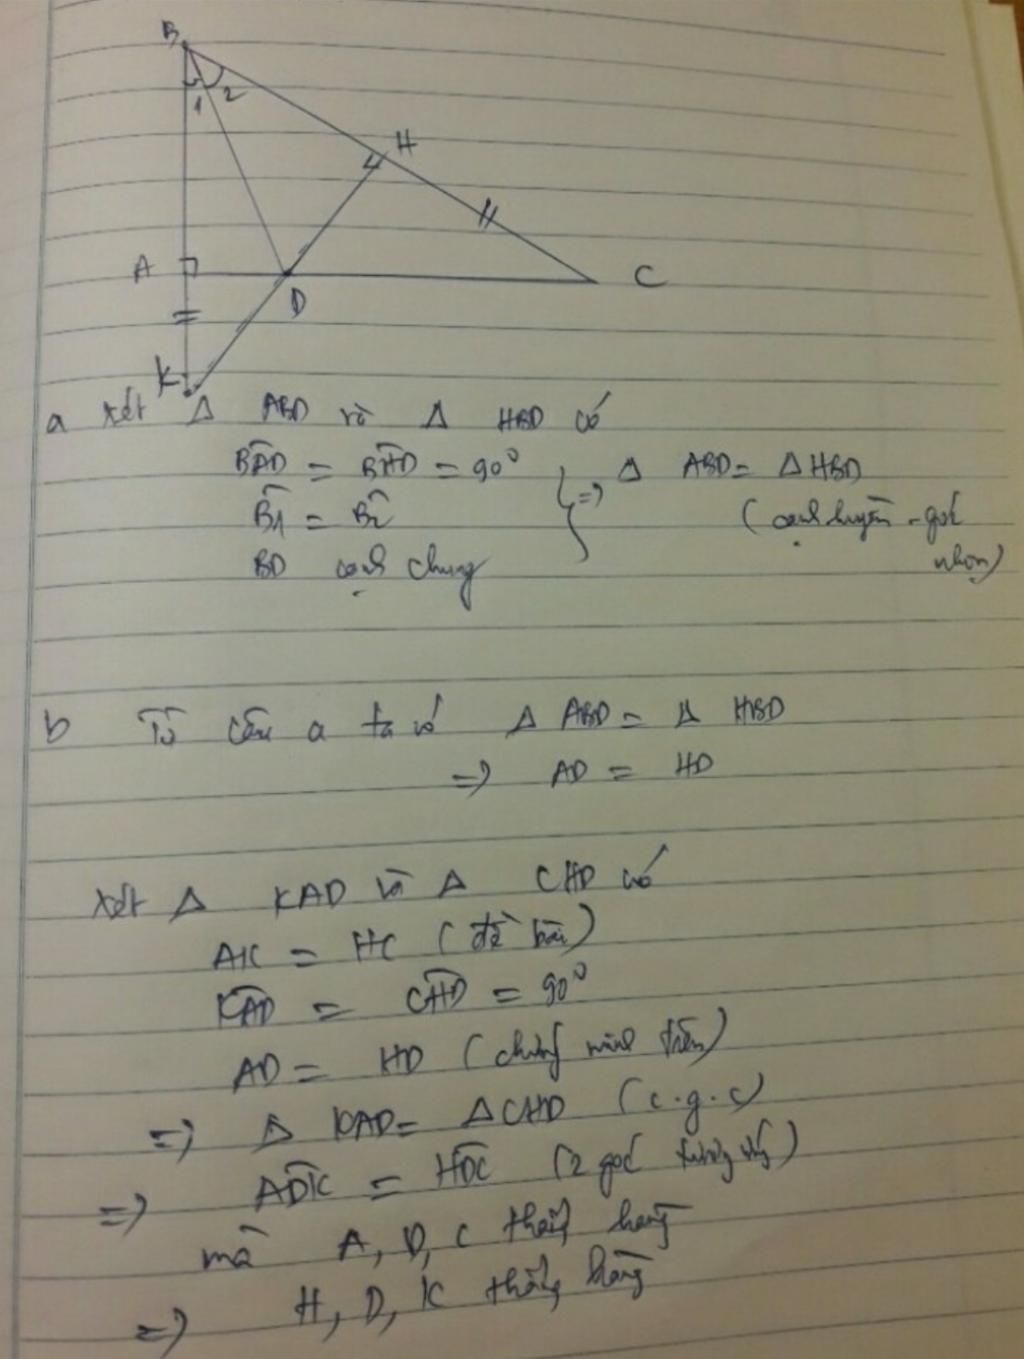 B
1 2
H
A
D
C
K
a xét Δ ABD và Δ HBD có
BAD = BHD = 90°
B1 = B2
BD cạnh chung
=> Δ ABD = Δ HBD
(cạnh huyền - góc
nhọn)
b Từ câu a ta có Δ ABD = Δ HBD
=> AD = HD
Xét Δ KAD và Δ CHD có
AK = HC (đề bài)
KAD = CHD = 90°
AD = HD (chứng minh trên)
=> Δ KAD = Δ CHD (c.g.c)
=> ADK = HDC (2 góc tương ứng)
mà A, D, C thẳng hàng
=> H, D, K thẳng hàng